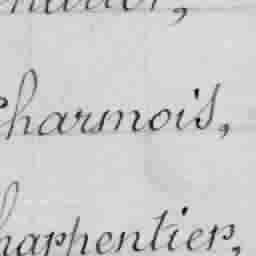 Charmois,
harpentier,